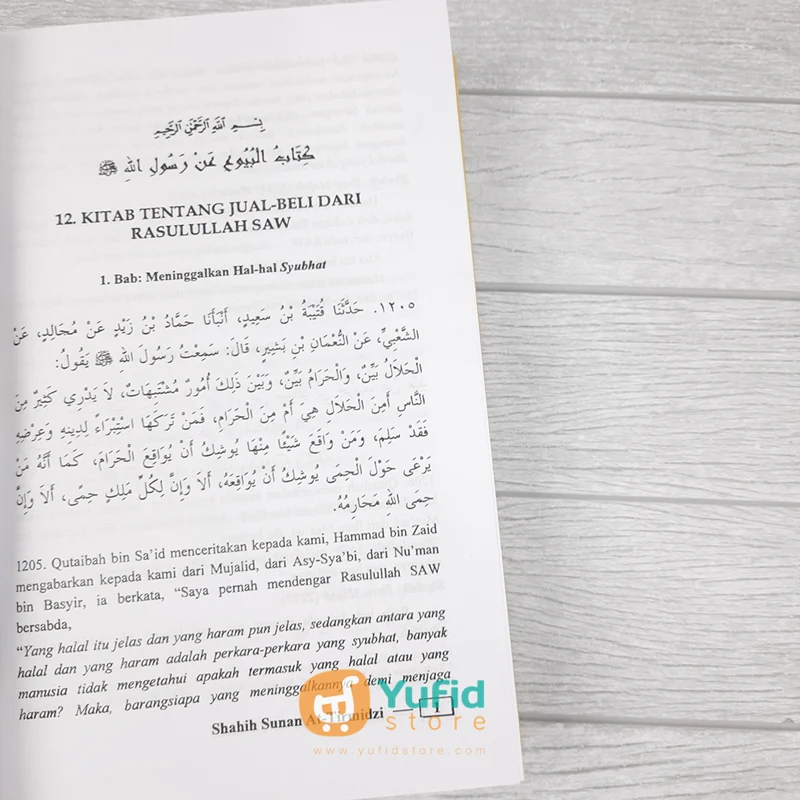 بِسْمِ اللَّهِ الرَّحْمَنِ الرَّحِيمِ
كِتَابُ الْبُيُوعِ عَنْ رَسُولِ اللهِ ﷺ
12. KITAB TENTANG JUAL-BELI DARI
RASULULLAH SAW
1. Bab: Meninggalkan Hal-hal Syubhat
١٢٠٥. حَدَّثَنَا قُتَيْبَةُ بْنُ سَعِيدٍ، أَنْبَأَنَا حَمَّادُ بْنُ زَيْدٍ عَنْ مُجَالِدٍ، عَنْ
الشَّعْبِيِّ، عَنْ النُّعْمَانِ بْنِ بَشِيرٍ، قَالَ: سَمِعْتُ رَسُولَ اللهِ ﷺ يَقُولُ:
الْحَلَالُ بَيِّنٌ، وَالْحَرَامُ بَيِّنٌ، وَبَيْنَ ذَلِكَ أُمُورٌ مُشْتَبِهَاتٌ، لَا يَدْرِي كَثِيرٌ مِنَ
النَّاسِ أَمِنَ الْحَلَالِ هِيَ أَمْ مِنَ الْحَرَامِ، فَمَنْ تَرَكَهَا اسْتِبْرَاءً لِدِينِهِ وَعِرْضِهِ
فَقَدْ سَلِمَ، وَمَنْ وَاقَعَ شَيْئًا مِنْهَا يُوشِكُ أَنْ يُوَاقِعَ الْحَرَامَ، كَمَا أَنَّهُ مَنْ
يَرْعَى حَوْلَ الْحِمَى يُوشِكُ أَنْ يُوَاقِعَهُ، أَلَا وَإِنَّ لِكُلِّ مَلِكٍ حِمًى، أَلَا وَإِنَّ
حِمَى اللهِ مَحَارِمُهُ.
1205. Qutaibah bin Sa'id menceritakan kepada kami, Hammad bin Zaid
mengabarkan kepada kami dari Mujalid, dari Asy-Sya'bi, dari Nu'man
bin Basyir, ia berkata, "Saya pernah mendengar Rasulullah SAW
bersabda,
"Yang halal itu jelas dan yang haram pun jelas, sedangkan antara yang
halal dan yang haram adalah perkara-perkara yang syubhat, banyak
manusia tidak mengetahui apakah termasuk yang halal atau yang
haram? Maka, barangsiapa yang meninggalkannya demi menjaga
Shahih Sunan At-Tirmidzi — 1
Yufid
store
www.yufidstore.com